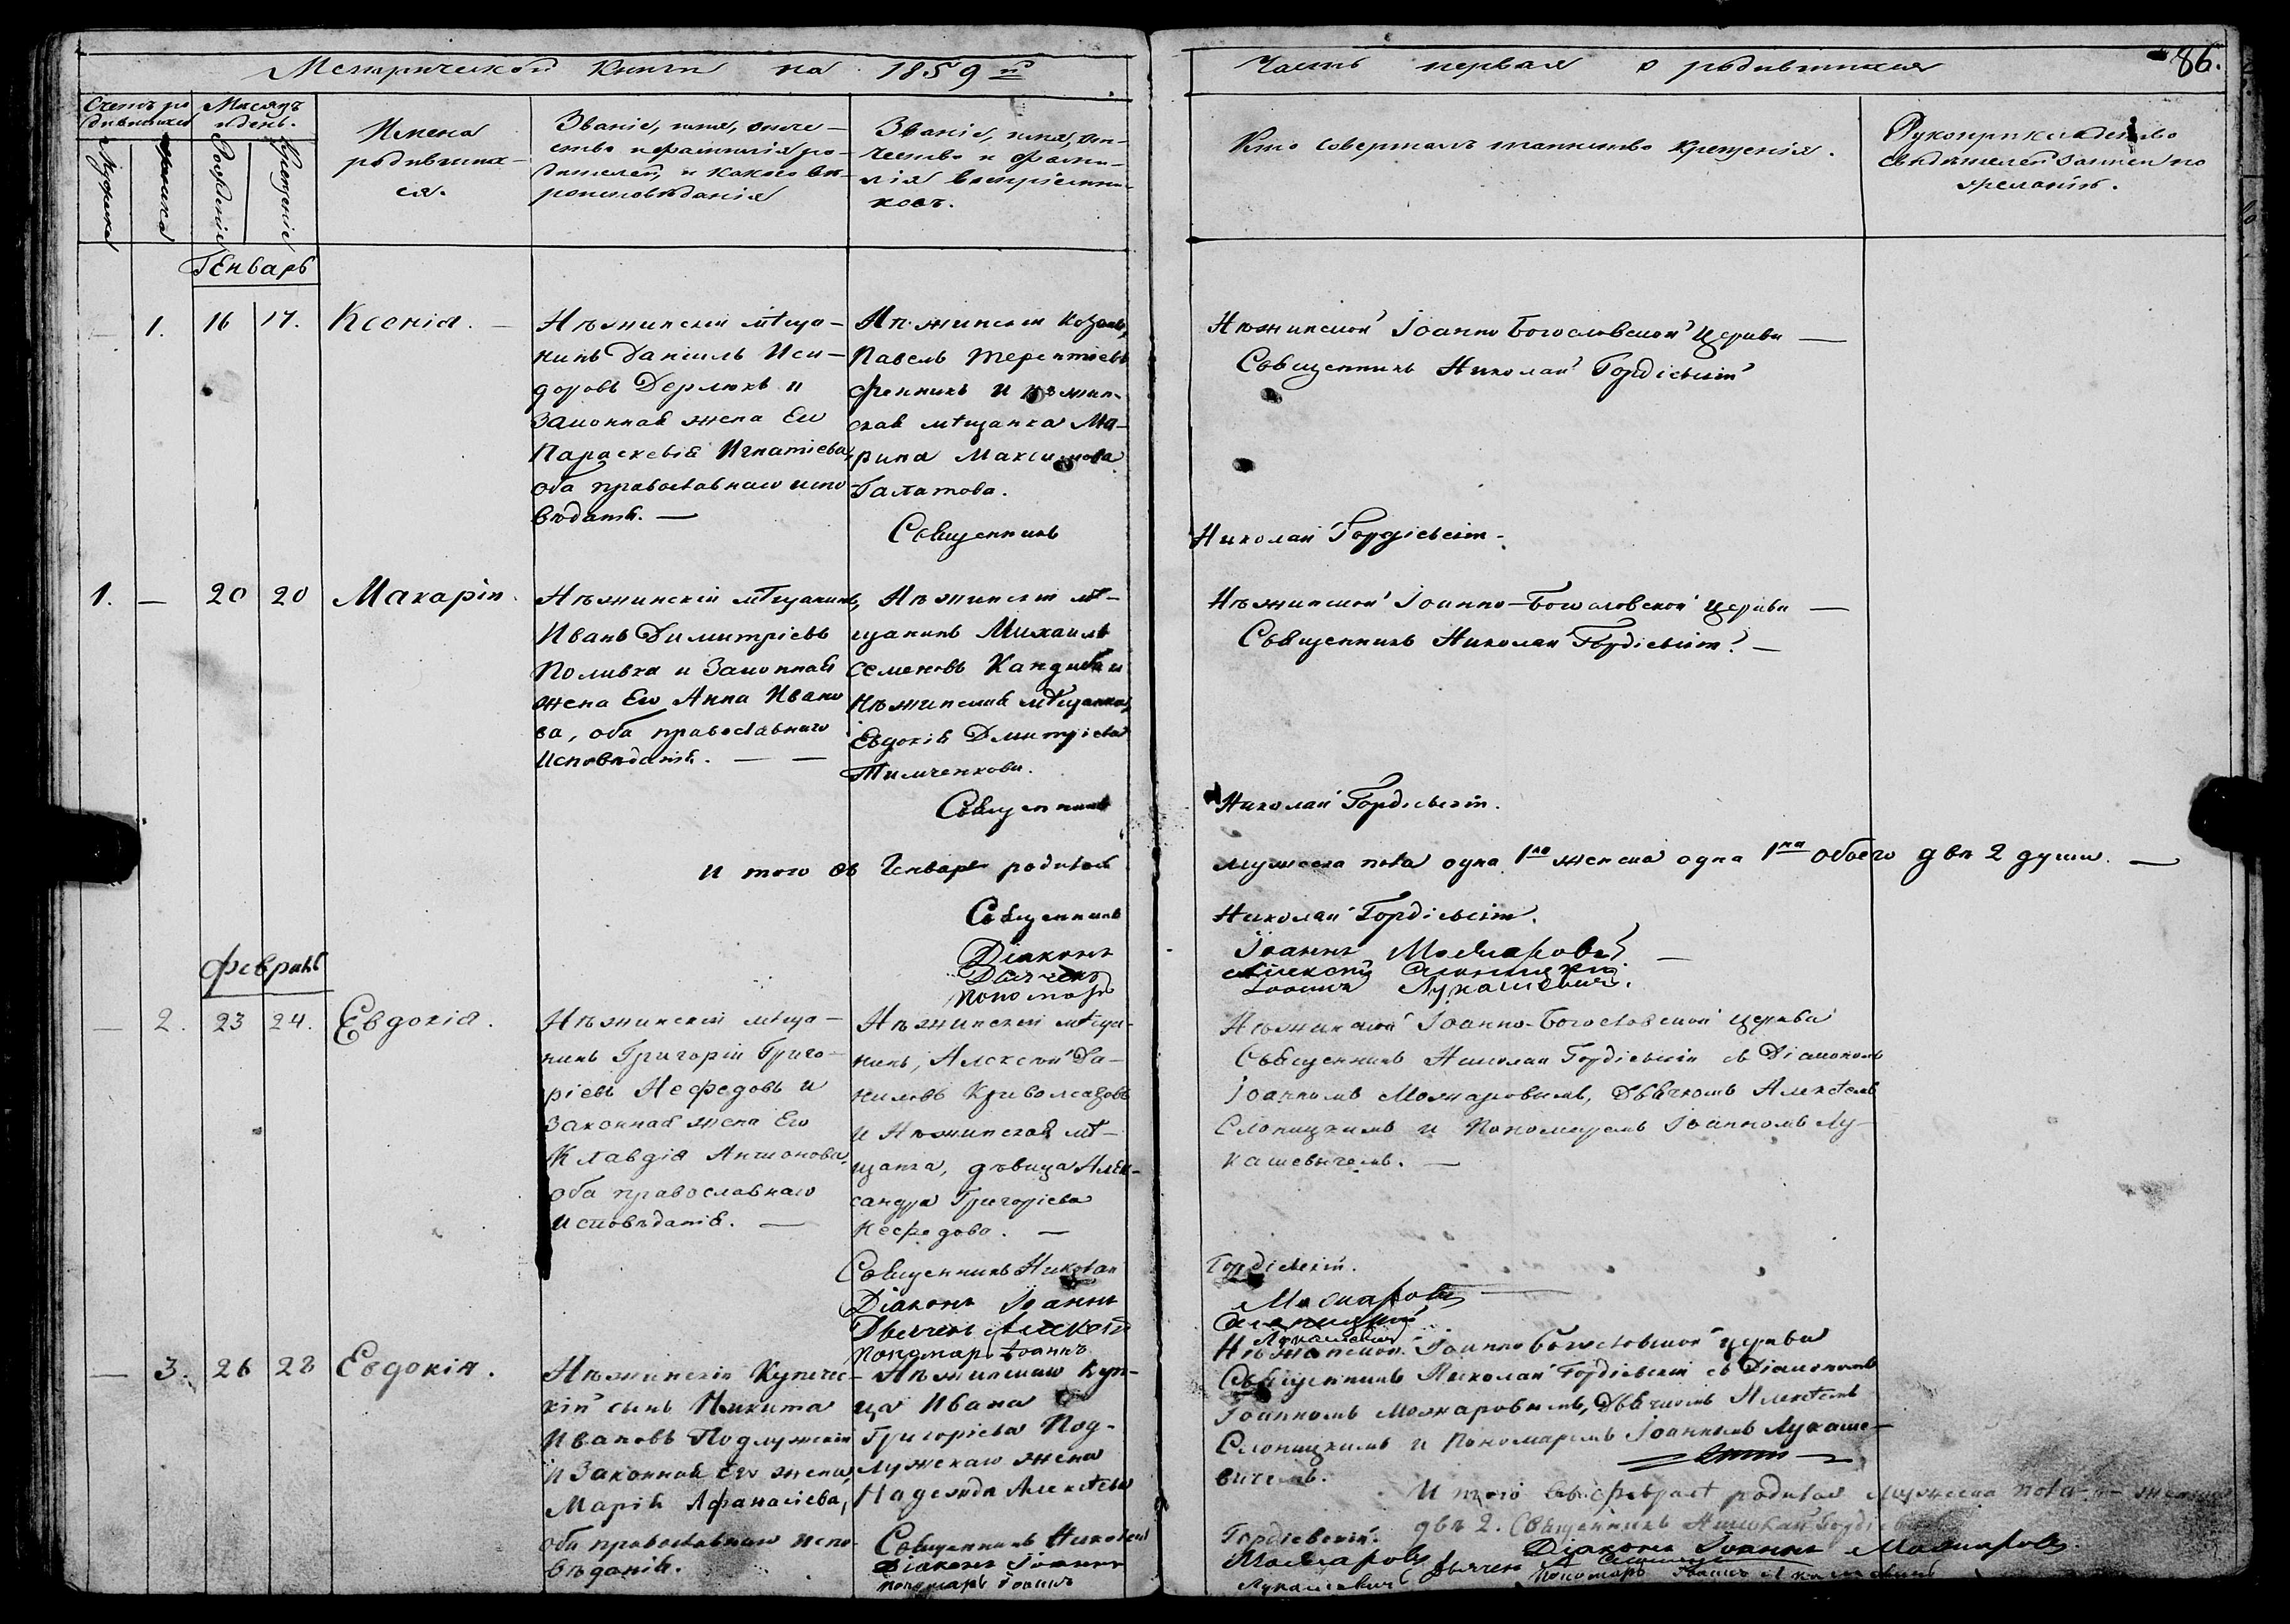 Метрической книги на 1859 й
Часть первая о родившихся
86.
Счетъ ро
дившихся
Мужеска
женска
Месяцъ
и день.
Рождение
Крещение
Имена
родивших-
ся.
Званіе, имя, отче-
ство и фамилія ро-
дителей, и какого ве-
роисповѣданія
Званіе, имя, от-
чество и фами-
лія воспріемни-
ковъ.
Кто совершалъ таинство крещенія.
Рукоприкладство
свидѣтелей записи по
желанію.
Генварь
1. 16 17. Ксенія.
Нѣжинскій мѣща-
нинъ Даніилъ Иси-
доровъ Дерлюкъ и
законная жена Его
Параскевія Игнатіева,
оба православнаго испо
вѣданія.
Нѣжинскій козакъ,
Павелъ Терентіевъ
и нѣжин-
ская мѣщанка Ма-
рина Максимова
Галатова.
Священникъ
Нѣжинской Іоанно Богословской Церкви
Священникъ Николай Гордіевскій
Николай Гордіевскій.
1. — 20 20 Макарій.
Нѣжинскій мѣщанинъ,
Иванъ Димитріевъ
Поливка и Законная
жена Его Анна Ивано
ва, оба православнаго
исповѣданія.
Нѣжинскій мѣ-
щанинъ Михаилъ
Семеновъ Кандиба и
Нѣжинская мѣщанка,
Евдокія Дмитріева
Тимченкова.
Священникъ
Нѣжинской Іоанно-Богословской церкви
Священникъ Николай Гордіевскій.
Николай Гордіевскій.
И того въ Генваре родилось
мужеска пола одна 1 на женска одна 1 на обоего двѣ 2 души.
Священникъ
Діаконъ
Дьячекъ
Пономарь
Николай Гордіевскій.
Іоаннъ Можаровъ
Алексей Слоницкій.
Іоаннъ Лукашевичъ.
февраль
— 2. 23 24. Евдокія.
Нѣжинскій мѣща-
нинъ Григорій Григо-
ріевъ Нефедовъ и
законная жена Его
Клавдія
оба православнаго
исповѣданія.
Нѣжинскій мѣща-
нинъ, Алексѣй Да-
ниловъ
и Нѣжинская мѣ-
щанка, дѣвица Алек-
сандра Григоріева
Нефедова.
Священникъ Николай
Діаконъ Іоаннъ
Дьячекъ Алексей
Пономарь Іоаннъ
Нѣжинской Іоанно-Богословской церкви
Священникъ Николай Гордіевскій съ Діакономъ
Іоанномъ Можаровымъ, Дьячкомъ Алексѣемъ
Слоницкимъ и Пономаремъ Іоанномъ Лу-
кашевичемъ.
Гордіевскій.
Можаровъ
Слоницкій
Лукашевичъ
— 3. 26 28 Евдокія.
Нѣжинскій Купече-
кій сынъ Никита
Ивановъ Подлужскій
и Законная Его жена,
Марія Афанасіева,
оба православнаго испо
вѣданія.
Нѣжинскаго куп-
ца Ивана
Григоріева Под-
лужскаго жена
Надежда Алексѣева
Священникъ Николай
Діаконъ Іоаннъ
Пономарь Іоаннъ
Нѣжинской Іоанно Богословской церкви
Священникъ Николай Гордіевскій съ Діакономъ
Іоанномъ Можаровымъ, Дьячкомъ Алексѣемъ
Слоницкимъ и Пономаремъ Іоанномъ Лукаше-
вичемъ.
И того въ февралѣ родилось мужеска пола — женска
двѣ 2. Священникъ Николай Гордіевскій
Гордіевскій.
Можаровъ
Діаконъ Іоаннъ Можаровъ.
Лукашевичъ
Дьячекъ А
Пономарь Іоаннъ Лукашевичъ